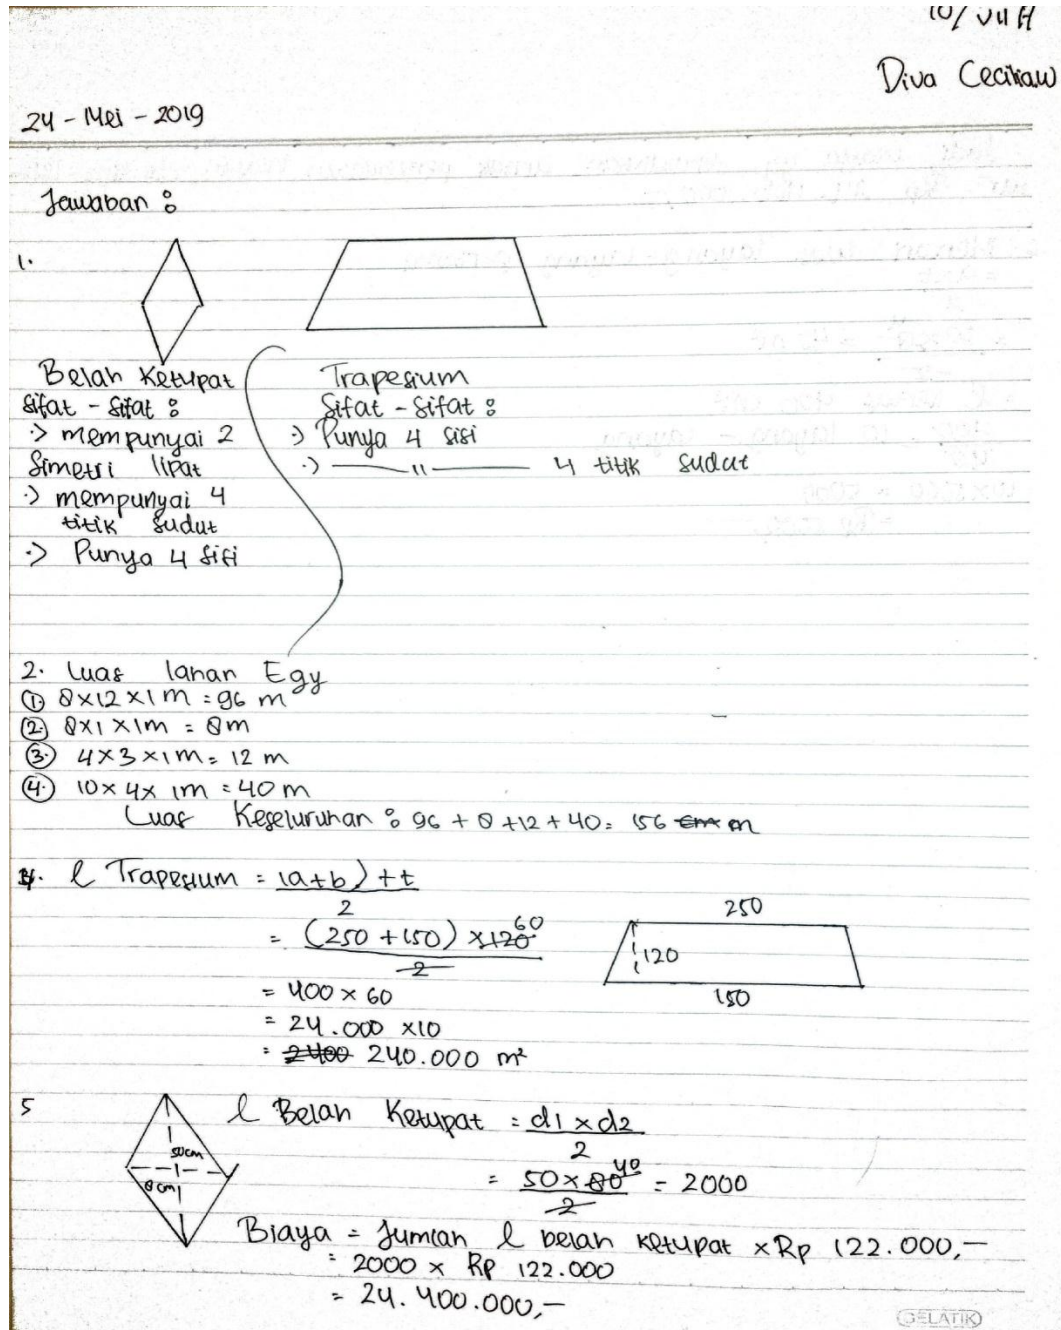 10/VII H
Diva Ceciliaw
24 - Mei - 2019
Jawaban :
1.
Belah Ketupat
Sifat - Sifat :
·> mempunyai 2
Simetri lipat
·> mempunyai 4
titik sudut
·> Punya 4 sisi
Trapesium
Sifat - Sifat :
·> Punya 4 sisi
·> ——— 〃 ——— 4 titik sudut
2. Luas lahan Egy
① 8×12×1m = 96 m
② 8×1×1m = 8m
③ 4×3×1m = 12 m
④ 10×4×1m = 40m
Luas Keseluruhan : 96 + 8 +12 + 40 = 156 cm m
4. l Trapesium = (a+b) + t
2
= (250 + 150) × 120 60
2
= 400 × 60
= 24.000 ×10
= 2400 240.000 m²
250
120
150
5
50cm
8cm
l Belah Ketupat = d1 × d2
2
= 50 × 80 40 = 2000
2
Biaya = Jumlah l belah ketupat × Rp 122.000,-
= 2000 × Rp 122.000
= 24.400.000,-
GELATIK